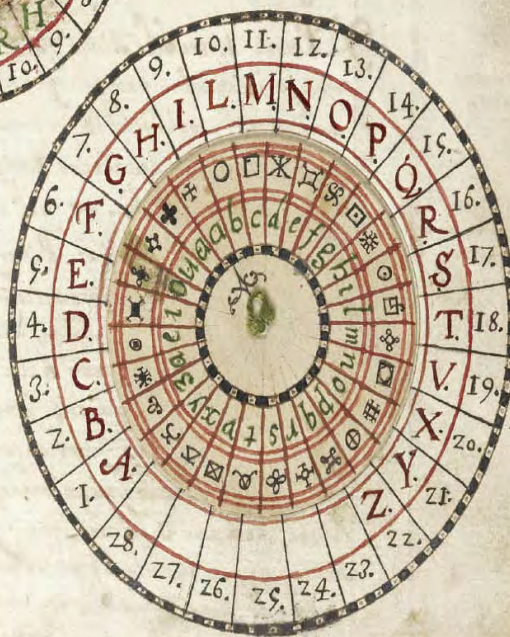 R H
9.
10.
1. 2. 3. 4. 5. 6. 7. 8. 9. 10. 11. 12. 13. 14. 15. 16. 17. 18. 19. 20. 21. 22. 23. 24. 25. 26. 27. 28.
A. B. C. D. E. F. G. H. I. L. M. N. O. P. Q. R. S. T. V. X. Y. Z.
a b c d e f g h i l m n o p q r s t v x y z a e i o u a